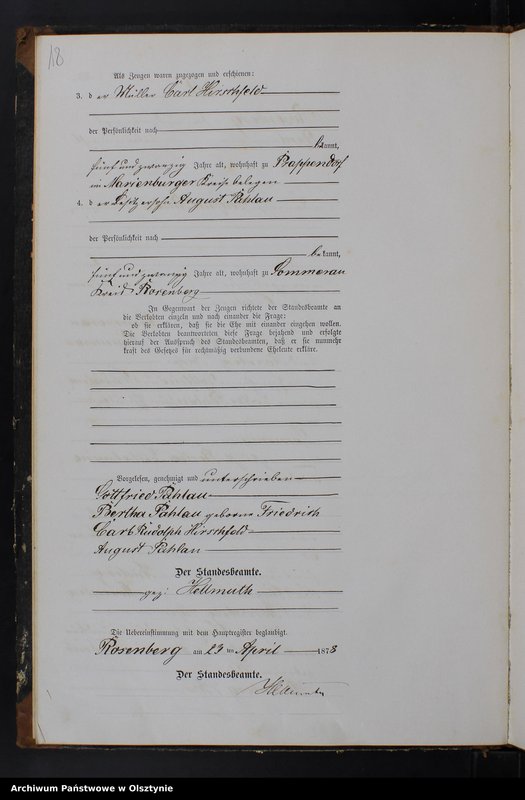 18
Als Zeugen waren zugezogen und erschienen:
3. der Müller Carl Hirschfeld
der Persönlichkeit nach
bekannt,
fünf und zwanzig Jahre alt, wohnhaft zu
im Marienburger Kreise belegen
4. der Besitzersohn August Pahlau
der Persönlichkeit nach
bekannt,
fünf und zwanzig Jahre alt, wohnhaft zu Sommerau
Kreis Rosenberg
In Gegenwart der Zeugen richtete der Standesbeamte an
die Verlobten einzeln und nach einander die Frage:
ob sie erklären, daß sie die Ehe mit einander eingehen wollen.
Die Verlobten beantworteten diese Frage bejahend und erfolgte
hierauf der Ausspruch des Standesbeamten, daß er sie nunmehr
kraft des Gesetzes für rechtmäßig verbundene Eheleute erkläre.
Vorgelesen, genehmigt und unterschrieben
Gottfried Pahlau
Bertha Pahlau geborne Friedrich
Carl Rudolph Hirschfeld
August Pahlau
Der Standesbeamte.
gez: Hellmuth
Die Uebereinstimmung mit dem Hauptregister beglaubigt
Rosenberg am 23ten April 1878
Der Standesbeamte.
Hellmuth
Archiwum Państwowe w Olsztynie